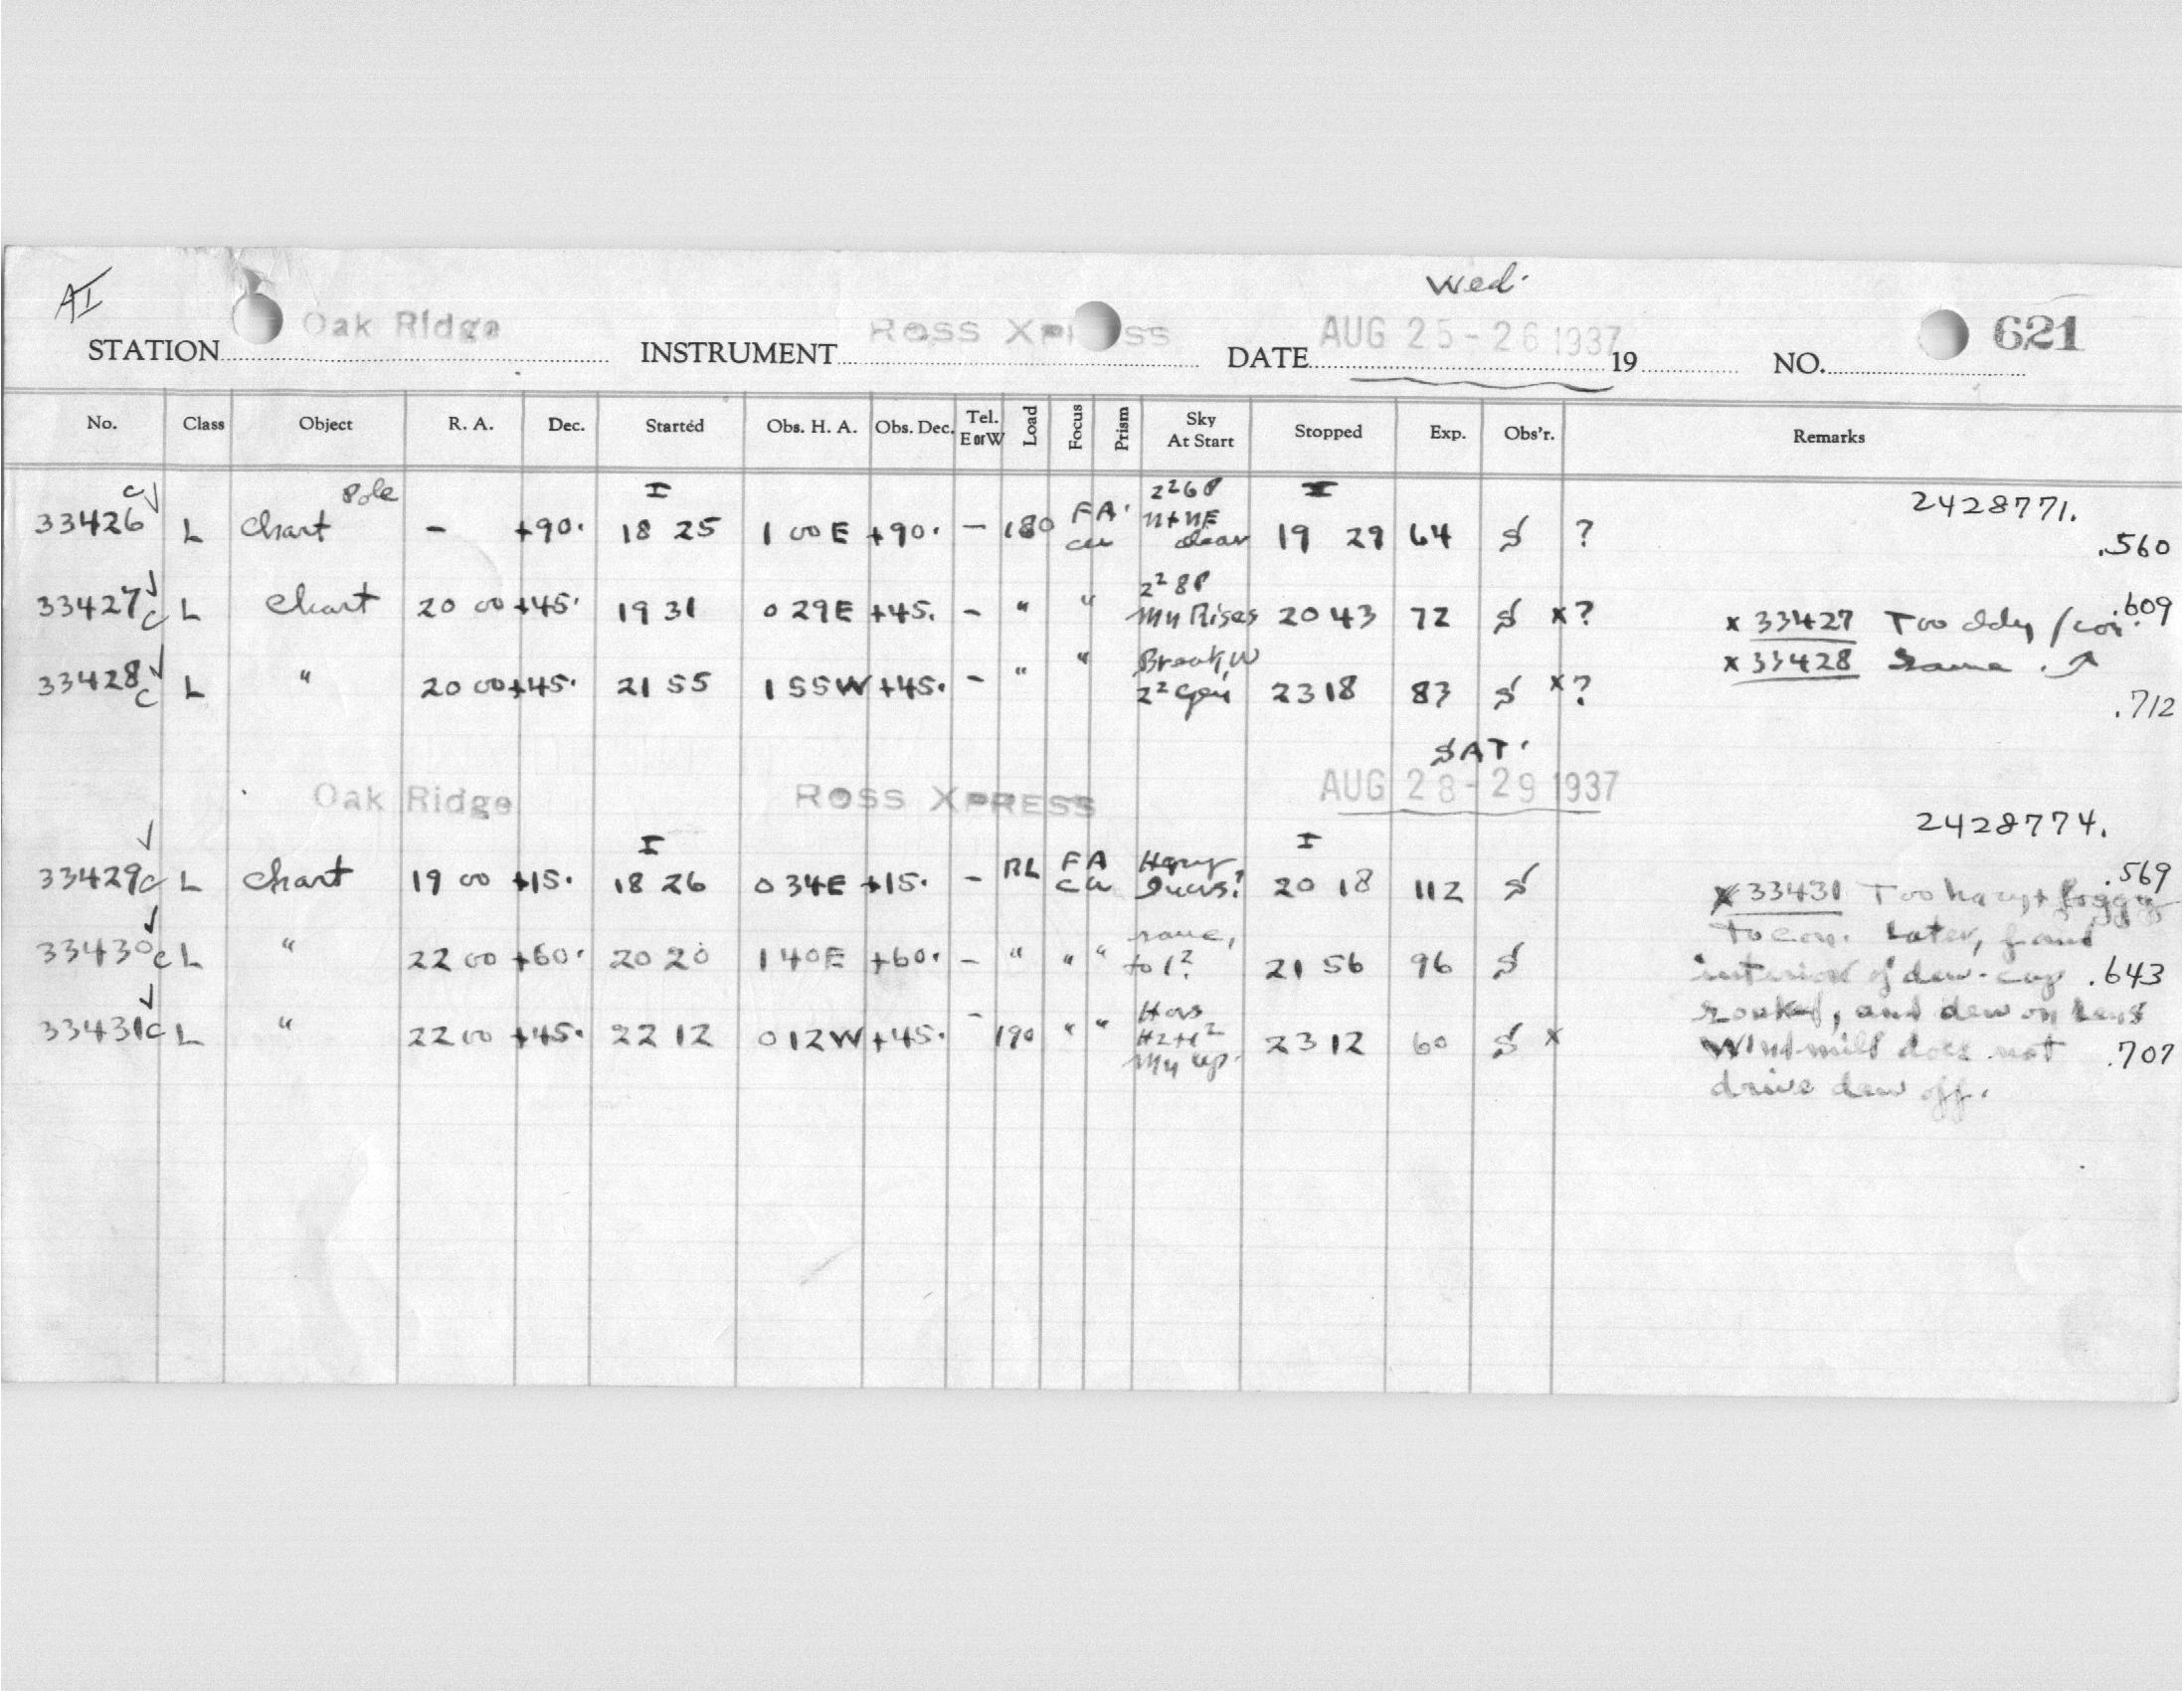 AI
Wed.
STATION Oak Ridge INSTRUMENT Ross Xpress DATE AUG 25-26 1937 19 NO. 621
No. Class Object R. A. Dec. Started Obs. H. A. Obs. Dec. Tel. E or W Load Focus Prism Sky At Start Stopped Exp. Obs'r. Remarks
33426 c L Chart Pole - +90. I 18 25 1 00 E +90. - 180 FA. cu 2² 6P N+NE clear I 19 29 64 S ? 2428771. .560
33427 c L Chart 20 00 +45. 19 31 0 29E +45. - " " 2² 8P Mn Rises 20 43 72 S x? x 33427 Too cldy / con. .609
33428 c L " 20 00 +45. 21 55 1 55W +45. - " " Break, W 2² 23 18 83 S x? x 33428 Same. .712
SAT.
Oak Ridge ROSS XPRESS AUG 28-29 1937
2428774.
33429 c L Chart 19 00 +15. I 18 26 0 34E +15. - RL FA cu Hazy I 20 18 112 S .569
33430 c L " 22 00 +60. 20 20 1 40E +60. - " " " same, to 1²? 21 56 96 S .643
33431 c L " 22 00 +45. 22 12 0 12W +45. - 190 " " Hors Hz+1² Mn up. 23 12 60 S x .707
x 33431 Too hazy + foggy
to con. Later, found
interior of dew-cap
soaked, and dew on lens
Windmill does not
drive dew off.